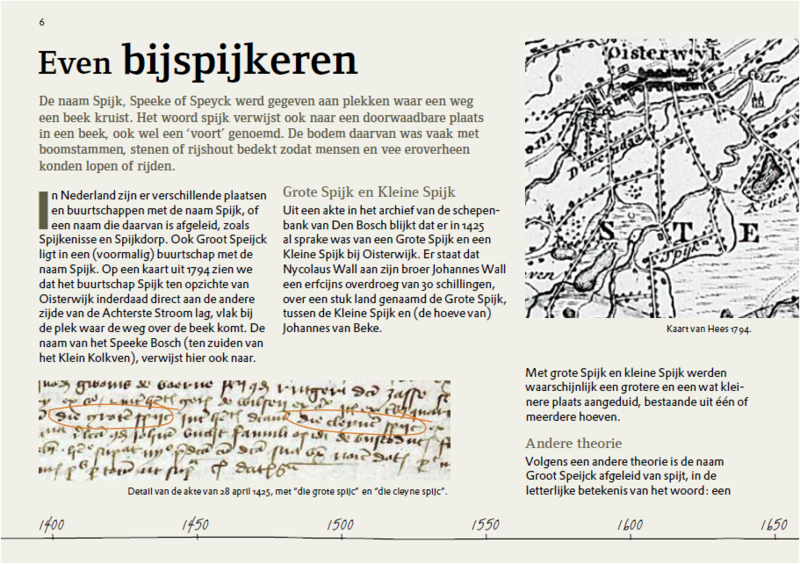 6
Even bijspijkeren
De naam Spijk, Speeke of Speyck werd gegeven aan plekken waar een weg
een beek kruist. Het woord spijk verwijst ook naar een doorwaadbare plaats
in een beek, ook wel een ‘voort’ genoemd. De bodem daarvan was vaak met
boomstammen, stenen of rijshout bedekt zodat mensen en vee eroverheen
konden lopen of rijden.
In Nederland zijn er verschillende plaatsen
en buurtschappen met de naam Spijk, of
een naam die daarvan is afgeleid, zoals
Spijkenisse en Spijkdorp. Ook Groot Speijck
ligt in een (voormalig) buurtschap met de
naam Spijk. Op een kaart uit 1794 zien we
dat het buurtschap Spijk ten opzichte van
Oisterwijk inderdaad direct aan de andere
zijde van de Achterste Stroom lag, vlak bij
de plek waar de weg over de beek komt. De
naam van het Speeke Bosch (ten zuiden van
het Klein Kolkven), verwijst hier ook naar.
Grote Spijk en Kleine Spijk
Uit een akte in het archief van de schepen-
bank van Den Bosch blijkt dat er in 1425
al sprake was van een Grote Spijk en een
Kleine Spijk bij Oisterwijk. Er staat dat
Nycolaus Wall aan zijn broer Johannes Wall
een erfcijns overdroeg van 30 schillingen,
over een stuk land genaamd de Grote Spijk,
tussen de Kleine Spijk en (de hoeve van)
Johannes van Beke.
die grote spijc
die cleyne spijc
Detail van de akte van 28 april 1425, met “die grote spijc” en “die cleyne spijc”.
Oisterwyk
Durendaal
S T E
Spijk
Kaart van Hees 1794.
Met grote Spijk en kleine Spijk werden
waarschijnlijk een grotere en een wat klei-
nere plaats aangeduid, bestaande uit één of
meerdere hoeven.
Andere theorie
Volgens een andere theorie is de naam
Groot Speijck afgeleid van spijt, in de
letterlijke betekenis van het woord: een
1400 1450 1500 1550 1600 1650